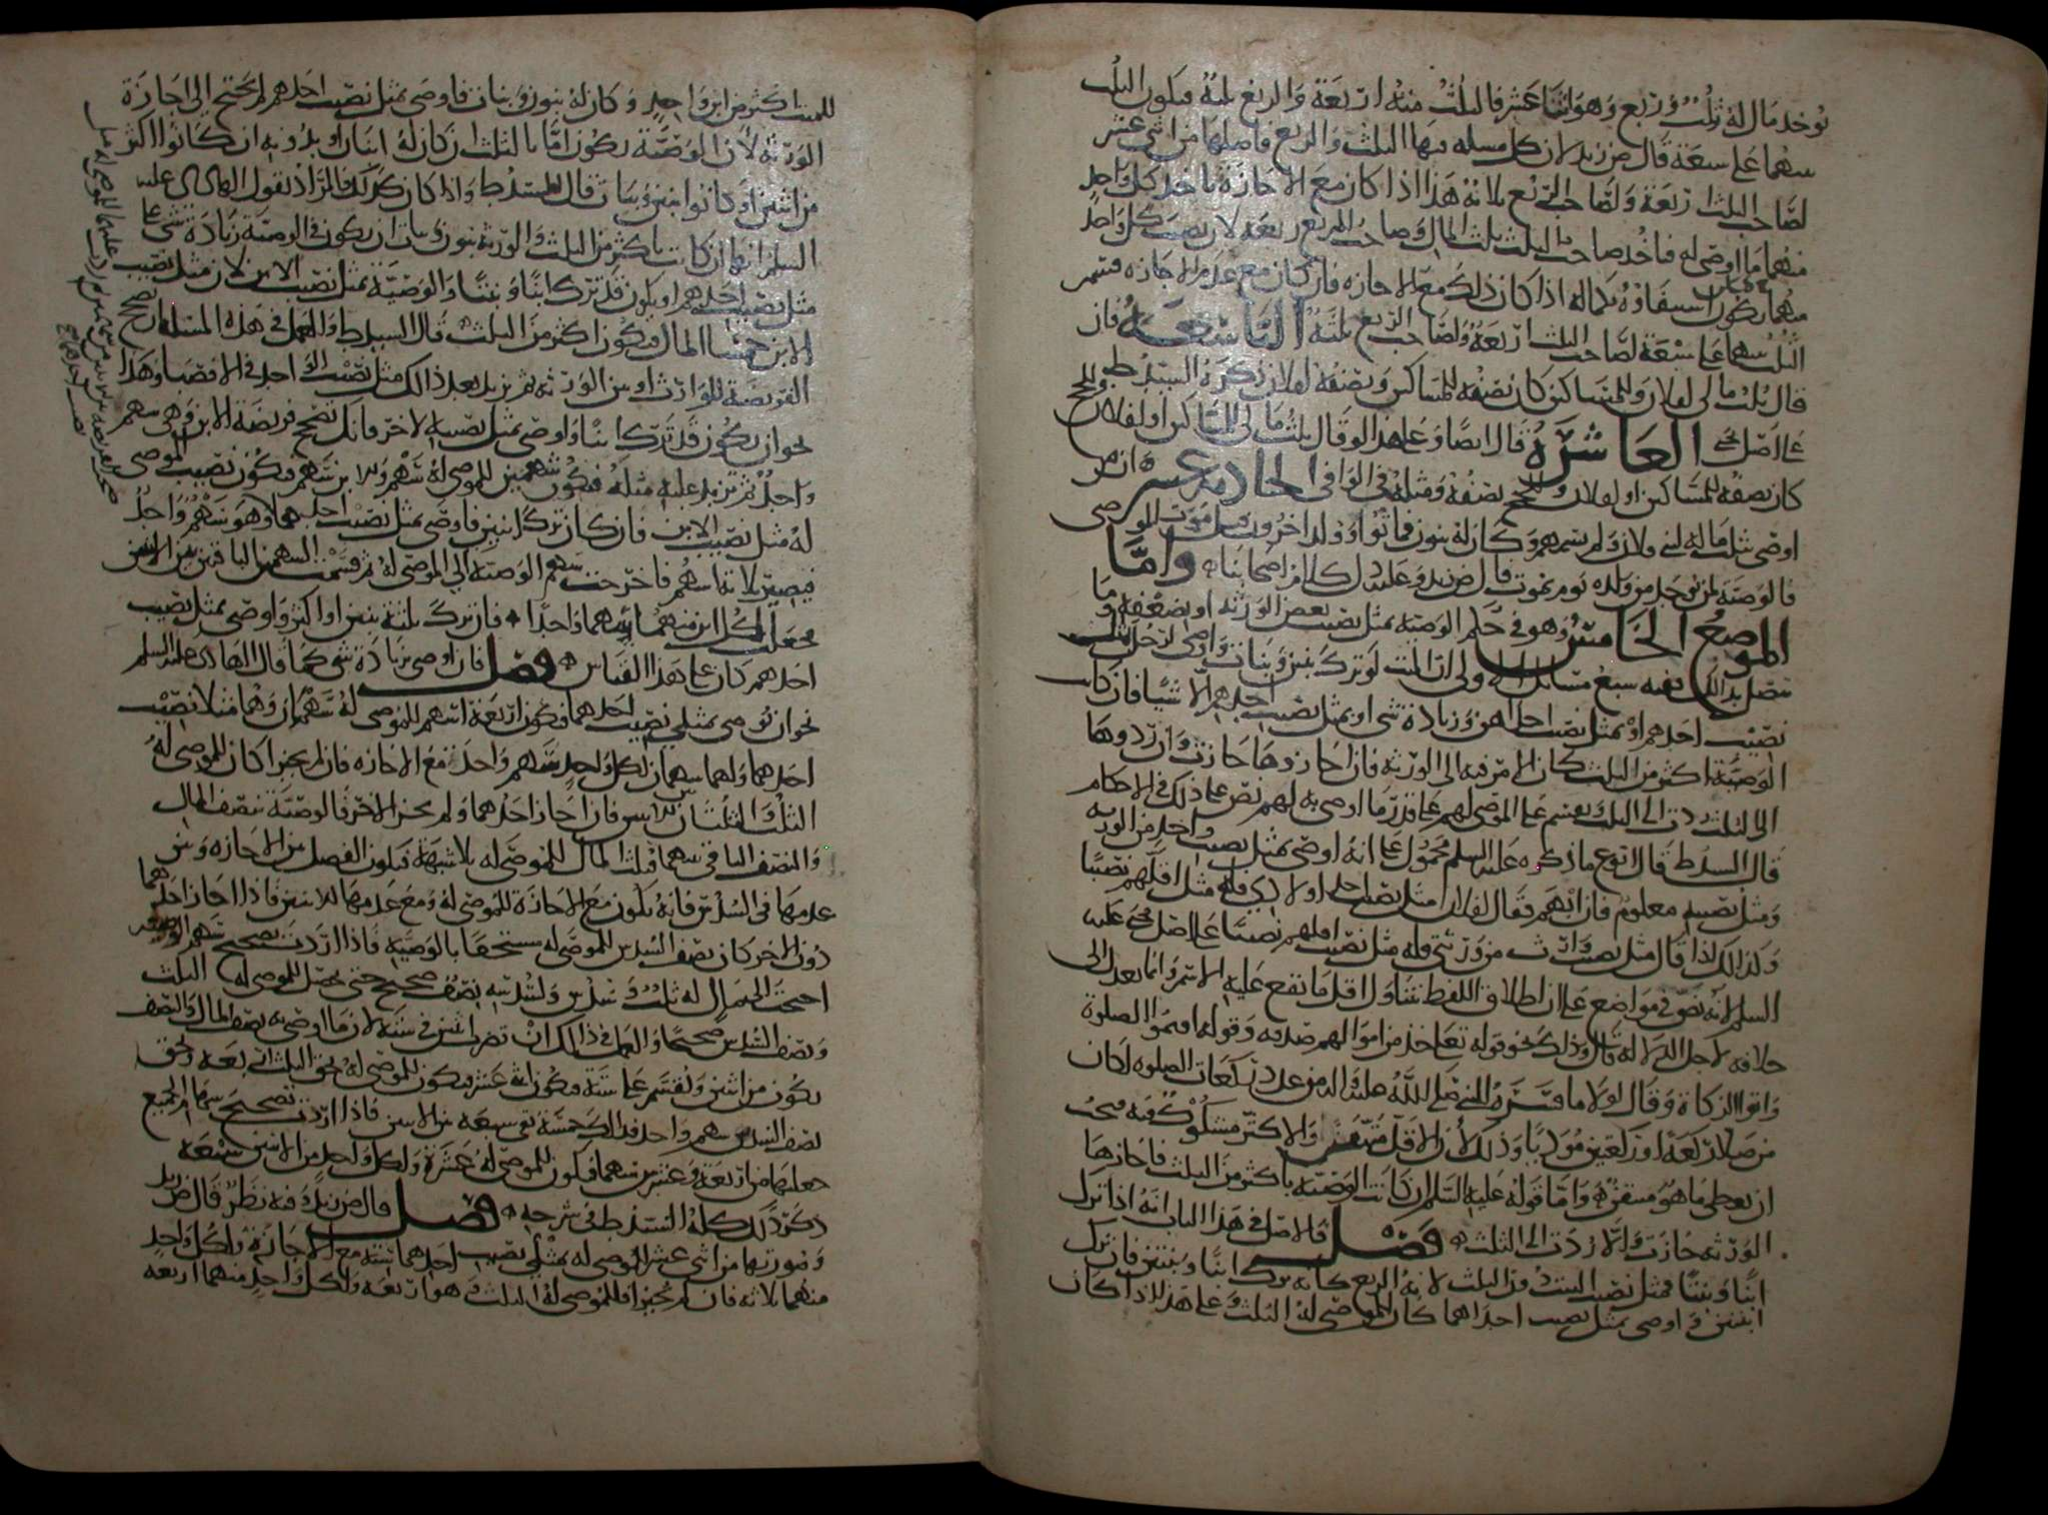 يوخذ مال له ثلث وربع وهو اثنا عشر فالثلث منه اربعة والربع ثلثة فيكون الثلث
سهما على سبعة قال ض زيد لان كل مسله فيها الثلث والربع فاصلها من اثني عشر
لصاحب الثلث اربعة ولصاحب الربع ثلاثة هذا اذا كان مع الاجازة ياخذ كل واحد
منهما ما اوصى له فياخذ صاحب الثلث ثلث المال وصاحب الربع ربعه لان نصيب كل واحد
منهما يكون استيفاؤه بكماله اذا كان ذلك مع الاجازه فان كان مع عدم الاجازه فيقسم
الثلث بينهما على سبعة لصاحب الثلث اربعة ولصاحب الربع ثلثة التاسعة فان
قال ثلث مالي لفلان وللمساكين كان نصفه للمساكين ونصفه لفلان ذكره السيد ط
على اصل يحيى العاشرة قال ايضا وعلى هذا لو قال ثلث مالي للمساكين او لفلان
كان نصفه للمساكين او لفلان نصفه ومثله في الوافي الحادية عشر ان من
اوصى بثلث ماله لبني فلان ولم يسمهم وكان له بنون فماتوا وولد اخرون قبل موت الموصي
فالوصية لمن يوجد من ولده يوم يموت قال ض زيد وعليه دل كلام اصحابنا واما
الموضع الخامس وهو في حكم الوصية بمثل نصيب بعض الورثة او بضعفه وما
يتصل بذلك ففيه سبع مسائل الاولى ان الميت لو ترك بنين وبنات واوصى لرجل بمثل
نصيب احدهم او بمثل نصيب احداهن وزيادة شي او بمثل نصيب احدهم الا شيا فان كانت
الوصية اكثر من الثلث كان الامر فيه الى الورثة فان اجازوها جازت وان ردوها
الى الثلث ردت الى الثلث يقسم على الموصى لهم على قدر ما اوصى به لهم نص على ذلك في الاحكام
قال السيد ط قال ما ذكره عليه السلم محمول على انه اوصى بمثل نصيب واحد من الورثه
ومثل نصيبه معلوم فان ابهم فقال لفلان مثل نصيب احد اولادي فله مثل اقلهم نصيبا
وكذلك اذا قال مثل نصيب وارث من ورثتي فله مثل نصيب اقلهم نصيبا على اصل يحيى عليه
السلم لانه نص في مواضع على ان اطلاق اللفظ يتناول اقل ما يقع عليه الاسم وانما يعدل الى
خلافه لاجل الدلاله قال وذلك نحو قوله تعالى خذ من اموالهم صدقه وقوله اقيموا الصلوة
واتوا الزكاة وقال لولا ما قرره النبي صلى الله عليه واله من عدد ركعات الصلوه لكان
من صلا ركعة او ركعتين موديا وذلك لان الاقل متيقن والاكثر مشكوك فيه فيجب
ان يعطى ما هو متيقن واما قوله عليه السلم ان كانت الوصية باكثر من الثلث فاجازها
الورثة جازت والا ردت الى الثلث فصل فالاصل في هذا الباب انه اذا ترك
ابنا وبنتا فمثل نصيب البنت دون الثلث لانه الربع كانه ترك ابنا وبنتين فان ترك
ابنتين واوصى بمثل نصيب احداهما كان للموصى له الثلث وعلى هذا اذا كان
للميت اكثر من ابن واحد وكان له بنون وبنات فاوصى بمثل نصيب احدهم لم يحتج الى اجازة
الورثة لان الوصية تكون اما بالثلث ان كان له ابنان او بدونه ان كانوا اكثر
من اثنين او كانوا بنين وبنات قال السيد ط واذا كان كذلك فالمراد بقول الهادي عليه
السلم انها ان كانت باكثر من الثلث والورثة بنون وبنات ان يكون في الوصية زيادة شي على
مثل نصيب احدهم او يكون قد ترك ابنا وبنتا والوصية بمثل نصيب الابن لان مثل نصيب
الابن خمسا المال فيكون اكثر من الثلث قال السيد ط والعمل في هذه المسئلة ان تصحح
الفريضة للوارث او بين الورثة ثم تزيد بعد ذلك مثل نصيب الواحد في الاقتصا وهذا
نحو ان يكون قد ترك ابنا واوصى بمثل نصيبه لاخر فانك تصحح فريضة الابن وهي سهم
واحد ثم تزيد عليه مثله فيكون سهمين للموصى له سهم وللابن سهم فيكون نصيب الموصى
له مثل نصيب الابن فان كان ترك ابنين فاوصى بمثل نصيب احدهما وهو سهم واحد
فيصير ثلاثة اسهم فاخرجت سهم الوصية الى الموصى له ثم قسمت السهمين الباقيين بين الابنين
فجعلت لكل ابن منهما سهما واحدا فان ترك ثلثة بنين او اكثر واوصى بمثل نصيب
احدهم كان على هذا القياس فصل فان اوصى بزيادة شي كما قال الهادي عليه السلم
نحو ان يوصي بمثلي نصيب احدهما فيكون اربعة اسهم للموصى له سهمان وهما مثلا نصيب
احدهما ولهما سهمان لكل واحد سهم واحد مع الاجازه فان لم يجيزا كان للموصى له
الثلث والثلثان للابنين فان اجاز احدهما ولم يجز الاخر فالوصية بنصف المال
والنصف الباقي بينهما فثلث المال للموصى له بلا شبهة فيكون الفصل بين الاجازه وبين
عدمها في السدس فانه يكون مع الاجازة للموصى له ومع عدمها للابنين فاذا اجاز احدهما
دون الاخر كان نصف السدس للموصى له مستحقا بالوصية فاذا اردت تصحيح سهم الوصية
احتجت الى مال له ثلث وسدس ولسدسه نصف صحيح حتى يحصل للموصى له الثلث
ونصف السدس صحيحا والعمل في ذلك ان تضرب اثنين في ستة لان ما اوصى به نصف المال والنصف
يكون من اثنين ويقسم على ستة فيكون اثنى عشر فيكون للموصى له بحق الثلث اربعة وبحق
نصف السدس سهم واحد فذلك خمسة تبقى سبعة بين الابنين فاذا اردت تصحيح سهام الجميع
جعلتها من اربعة وعشرين سهما فيكون للموصى له عشرة ولكل واحد من الابنين سبعة
ذكر ذلك كله السيد ط في شرحه فصل قال ض زيد وفيه نظر قال ض زيد
وصورتها من اثني عشر للموصى له بمثلي نصيب احدهما ستة مع الاجازة ولكل واحد
منهما ثلاثه فان لم يجيزا فللموصى له الثلث وهو اربعة ولكل واحد منهما اربعه